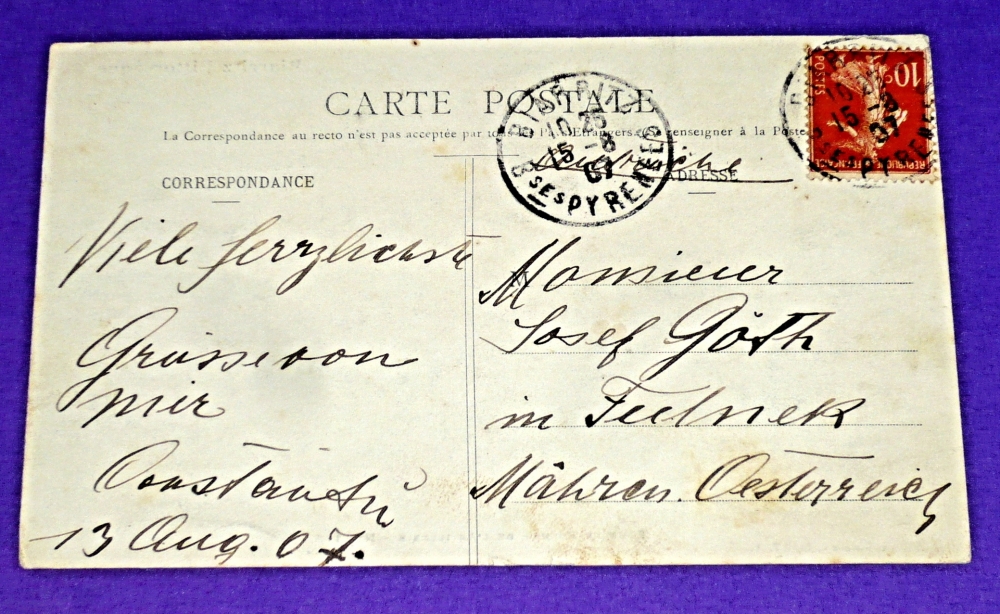 CARTE POSTALE
La Correspondance au recto n'est pas acceptée par tous les Pays Etrangers (Se renseigner à la Poste
CORRESPONDANCE
ADRESSE
BIARRITZ
10 25
15 -8
07
Bses PYRENEES
10c
POSTES
REPUBLIQUE FRANÇAISE
Viele herzlichste
Grüsse von
mir
13 Aug. 07.
Monsieur
Josef Göth
in
Mähren. Oesterreich